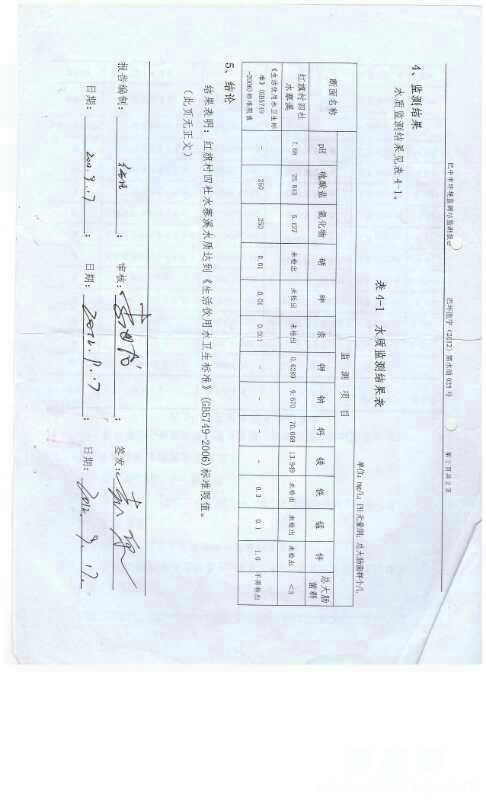 巴中市环境监测站监测报告 巴环监字（2012）第水质025号 第2页共2页
4、监测结果
水质监测结果见表4-1。
表4-1 水质监测结果表
单位：mg/L；pH无量纲；总大肠菌群个/L
断面名称 监测项目
pH 硫酸盐 氯化物 硒 砷 汞 钾 钠 钙 镁 铁 锰 锌 总大肠菌群
红旗村四社水寨溪 未检出 未检出 未检出 0.4289 9.670 70.668 13.949 未检出 未检出 未检出 <3
《生活饮用水卫生标准》GB5749-2006标准限值 - 250 250 0.01 0.01 0.001 - - - - 0.3 0.1 1.0 不得检出
5、结论
结果表明：红旗村四社水寨溪水质达到《生活饮用水卫生标准》(GB5749-2006)标准限值。
（此页无正文）
报告编制： ； 审核： ； 签发：
日期：2012.9.17 ； 日期：2012.9.17 ； 日期：2012.9.17.